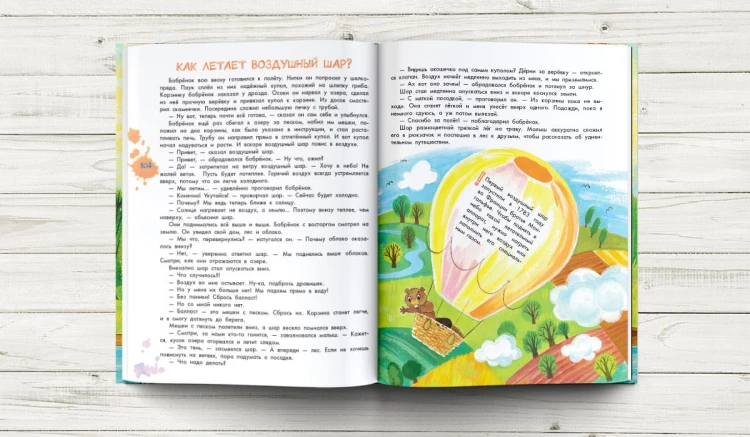 Как летает воздушный шар?
Бобрёнок всю весну готовился к полёту. Нитки он попросил у шелко-
пряда. Паук сплёл из них надёжный купол, похожий на шляпку гриба.
Корзинку бобрёнок заказал у дрозда. Осоки он нарвал у озера, сделал
из неё прочную верёвку и привязал купол к корзине. Из досок смасте-
рил скамеечки. Посередине сложил небольшую печку с трубой.
— Ну вот, теперь почти всё готово, — сказал он сам себе и улыбнулся.
Бобрёнок ещё раз сбегал к озеру за песком, набил им мешки, по-
ложил на дно корзины, как было указано в инструкции, и стал раста-
пливать печь. Трубу он направил прямо в сплетённый купол. И вот купол
начал надуваться и расти. И вскоре воздушный шар повис в воздухе.
— Привет, — сказал воздушный шар.
— Привет, — обрадовался бобрёнок. — Ну что, ожил?
— Да! — затрепетал на ветру воздушный шар. — Хочу в небо! Не
жалей веток. Пусть будет потеплее. Горячий воздух всегда устремляется
вверх, потому что он легче холодного.
— Мы летим... — удивлённо проговорил бобрёнок.
— Конечно! Укутайся! — проворчал шар. — Сейчас будет холодно.
— Почему? Мы ведь теперь ближе к солнцу.
— Солнце нагревает не воздух, а землю... Поэтому внизу теплее, чем
наверху, — объяснил шар.
Они поднимались всё выше и выше. Бобрёнок с восторгом смотрел на
землю. Он увидел свой дом, лес и облако.
— Мы что, перевернулись? — испугался он. — Почему облако оказа-
лось внизу?
— Нет, — уверенно ответил шар. — Мы поднялись выше облаков.
Смотри, как они отражаются в озере.
Внезапно шар стал опускаться вниз.
— Что случилось?!
— Воздух во мне остывает. Ну-ка, подбрось дровишек.
— Но у меня их больше нет! Мы падаем прямо в воду!
— Без паники! Сбрось балласт!
— Но со мной никого нет.
— Балласт — это мешки с песком. Сбрось их. Корзина станет легче,
и я смогу дотянуть до берега.
Мешки с песком полетели вниз, а шар весело помчался вверх.
— Смотри, за нами кто-то гонится, — заволновался малыш. — Кажет-
ся, кусок озера оторвался и летит следом.
— Это тень, — засмеялся шар. — А впереди — лес. Если не хочешь
повиснуть на ветвях, пора подумать о посадке.
— Что надо делать?
104
— Видишь окошечко под самым куполом? Дёрни за верёвку — откроет-
ся клапан. Воздух начнёт медленно выходить из меня, и мы приземлимся.
— Ах вот оно зачем! — обрадовался бобрёнок и потянул за шнур.
Шар стал медленно опускаться вниз и вскоре коснулся земли.
— С мягкой посадкой, — проговорил он. — Из корзины пока не вы-
ходи. Она станет лёгкой и меня унесёт вверх одного. Подожди, пока я
немного сдуюсь, а уж потом вылезай.
— Спасибо за полёт! — поблагодарил бобрёнок.
Шар разноцветной тряпкой лёг на траву. Малыш аккуратно сложил
его в рюкзачок и поспешил в лес к друзьям, чтобы рассказать об удиви-
тельном путешествии.
Первый воздушный шар
запустили в 1783 году
во Франции братья Мон-
гольфье. Чтобы поднять в
небо такой летательный
аппарат, нужно нагреть
внутри него воздух или
заполнить его специаль-
ным газом.